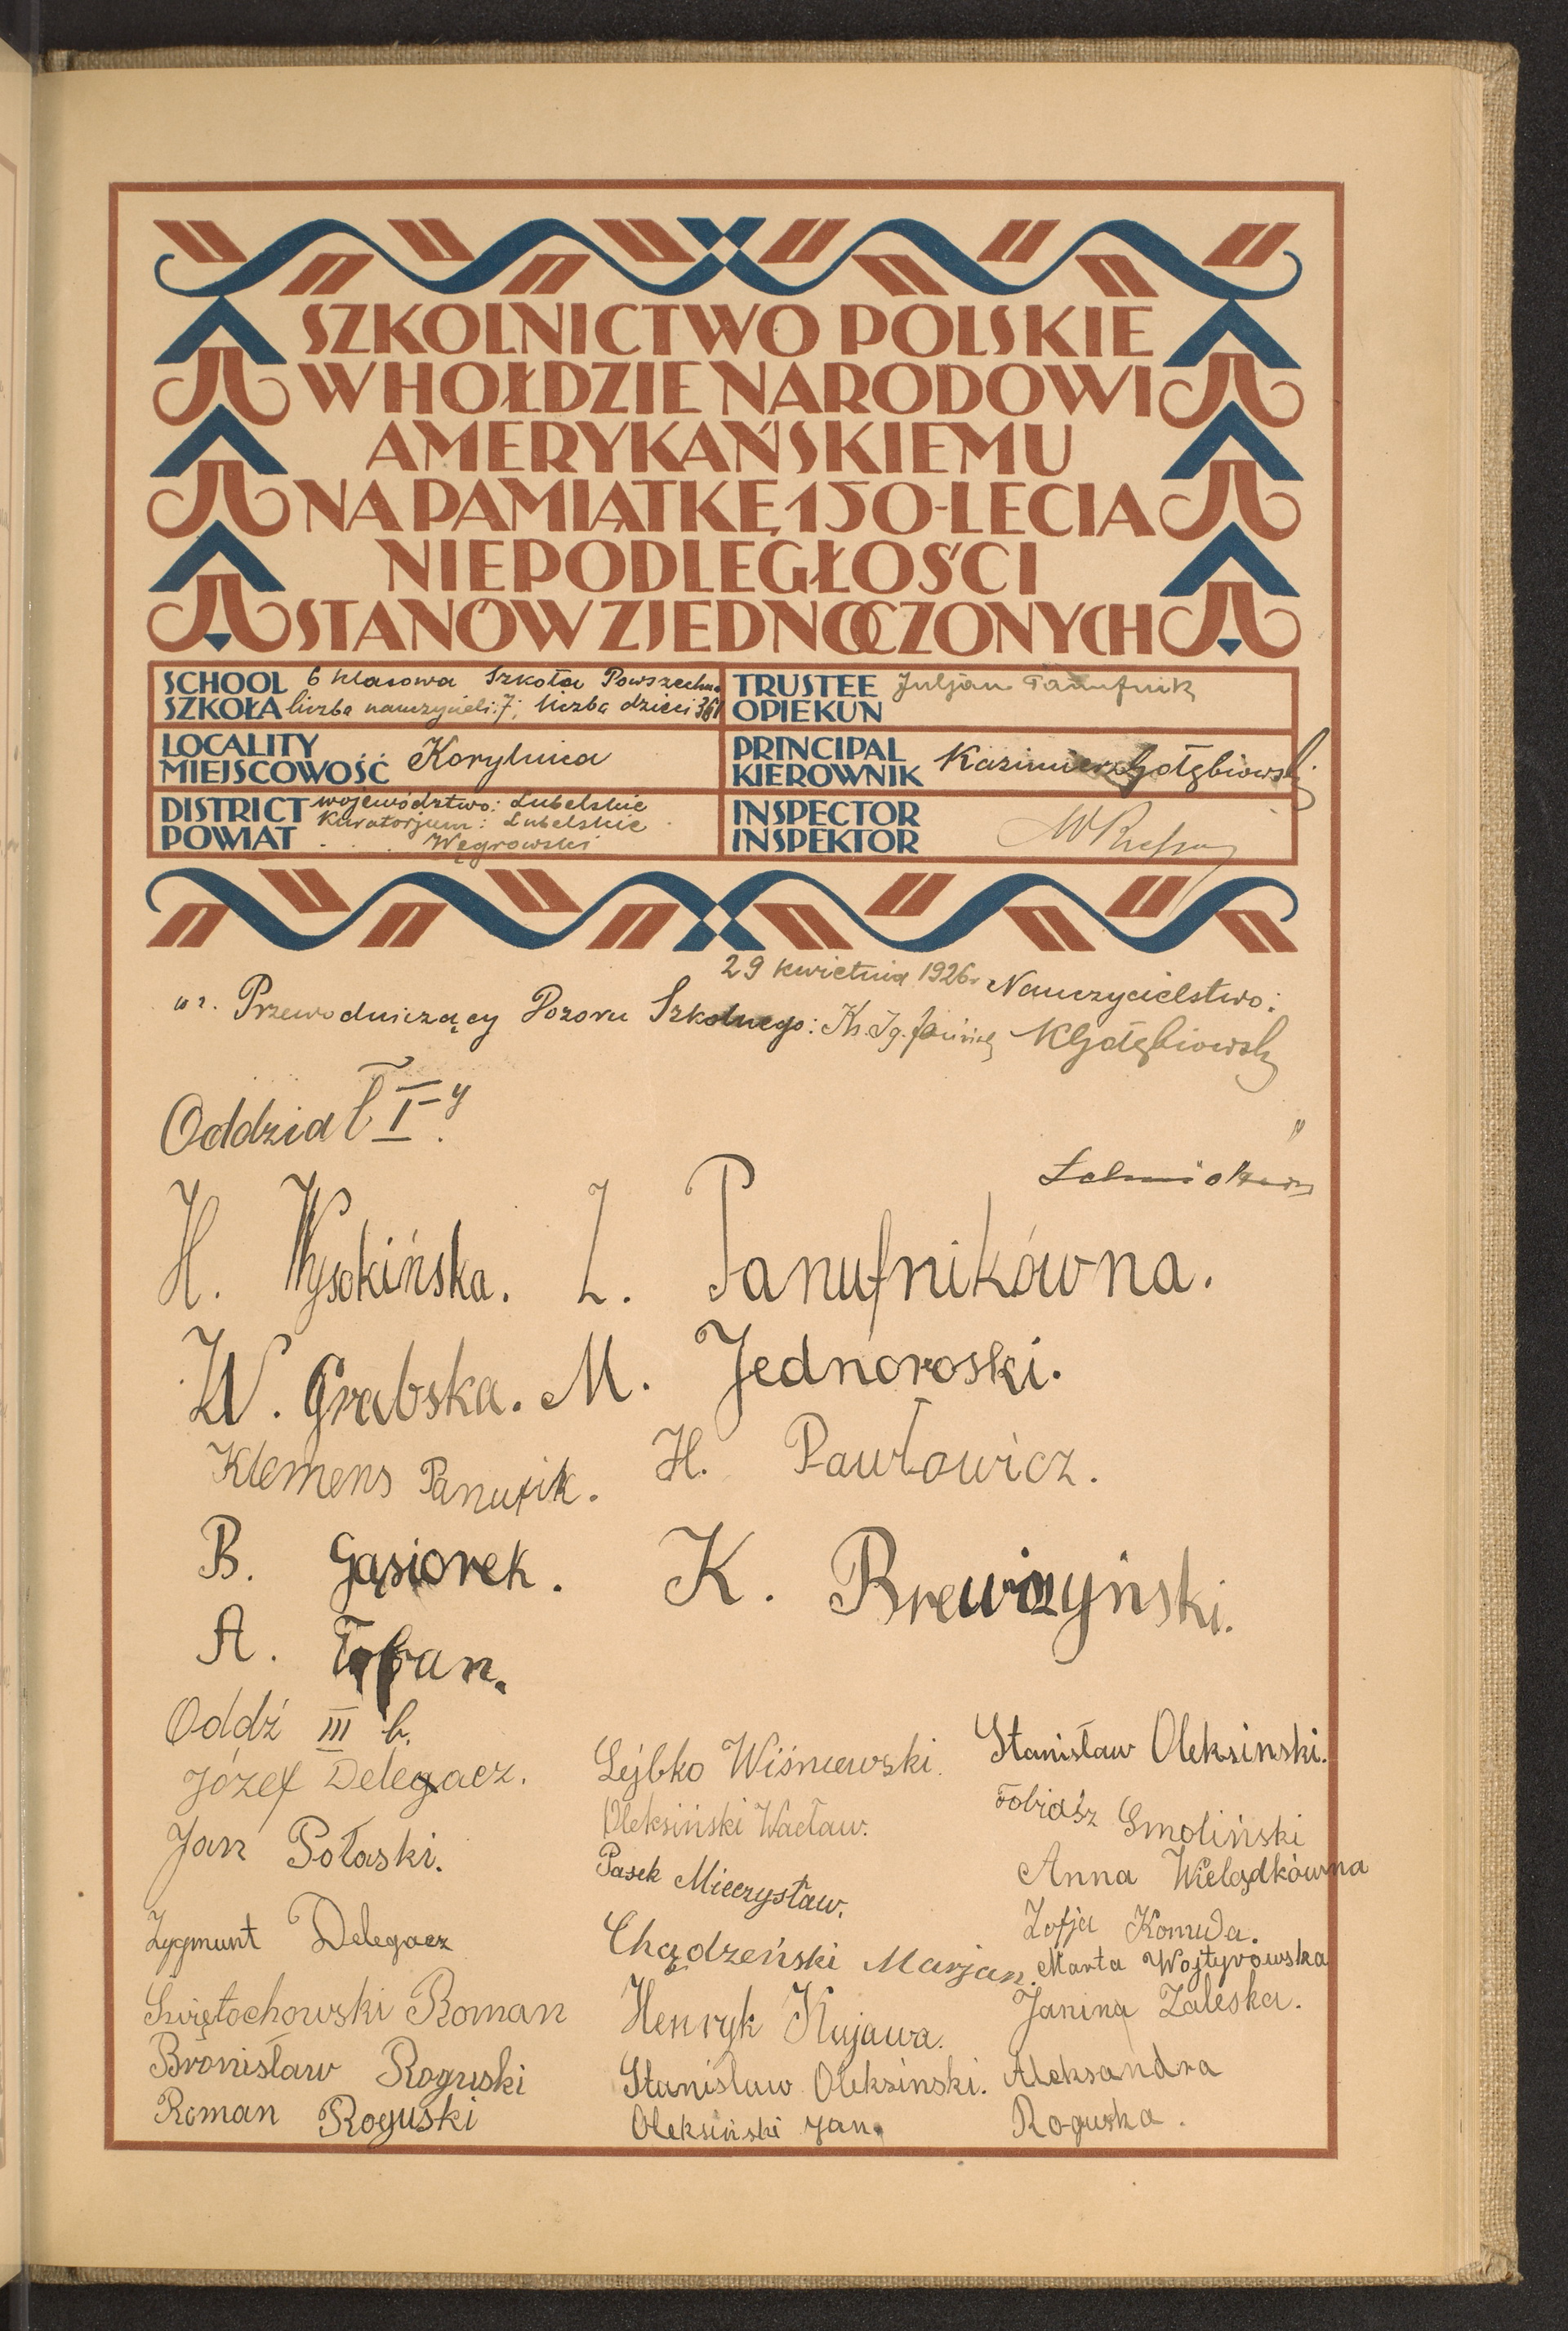 SZKOLNICTWO POLSKIE
W HOŁDZIE NARODOWI
AMERYKAŃSKIEMU
NA PAMIĄTKĘ 150-LECIA
NIEPODLEGŁOŚCI
STANÓW ZJEDNOCZONYCH
SCHOOL SZKOŁA 6 klasowa Szkoła Powszechna
liczba nauczycieli: 7; liczba dzieci 361
TRUSTEE OPIEKUN Juljan Panufnik
LOCALITY MIEJSCOWOŚĆ Korytnica
PRINCIPAL KIEROWNIK Kazimierz Gołębiowski
DISTRICT POWIAT województwo: Lubelskie
Kuratorjum: Lubelskie
Węgrowski
INSPECTOR INSPEKTOR
29 kwietnia 1926r. Nauczycielstwo:
wz. Przewodniczący Dozoru Szkolnego: Ks. Ig. KGołębiowski
Oddział I-y.
H. Wysokińska. Z. Panufnikówna.
W. Grabska. M. Jednoroski.
Klemens Panufik. H. Pawłowicz.
B. Gąsiorek. K. Brewczyński.
A.
Oddź III b.
Józef Delegacz.
Jan Połaski.
Zygmunt Delegacz
Świętochowski Roman
Bronisław Roguski
Roman Roguski
Lejbko Wiśniewski.
Oleksiński Wacław.
Pasek Mieczysław.
Chądzeński Marjan.
Henryk Kujawa.
Stanisław Oleksinski.
Oleksiński Jan.
Stanisław Oleksinski.
Tobiasz Smoliński
Anna Wielądkówna
Zofja Komuda.
Marta Wojtyrowska
Janina Zaleska.
Aleksandra
Roguska.